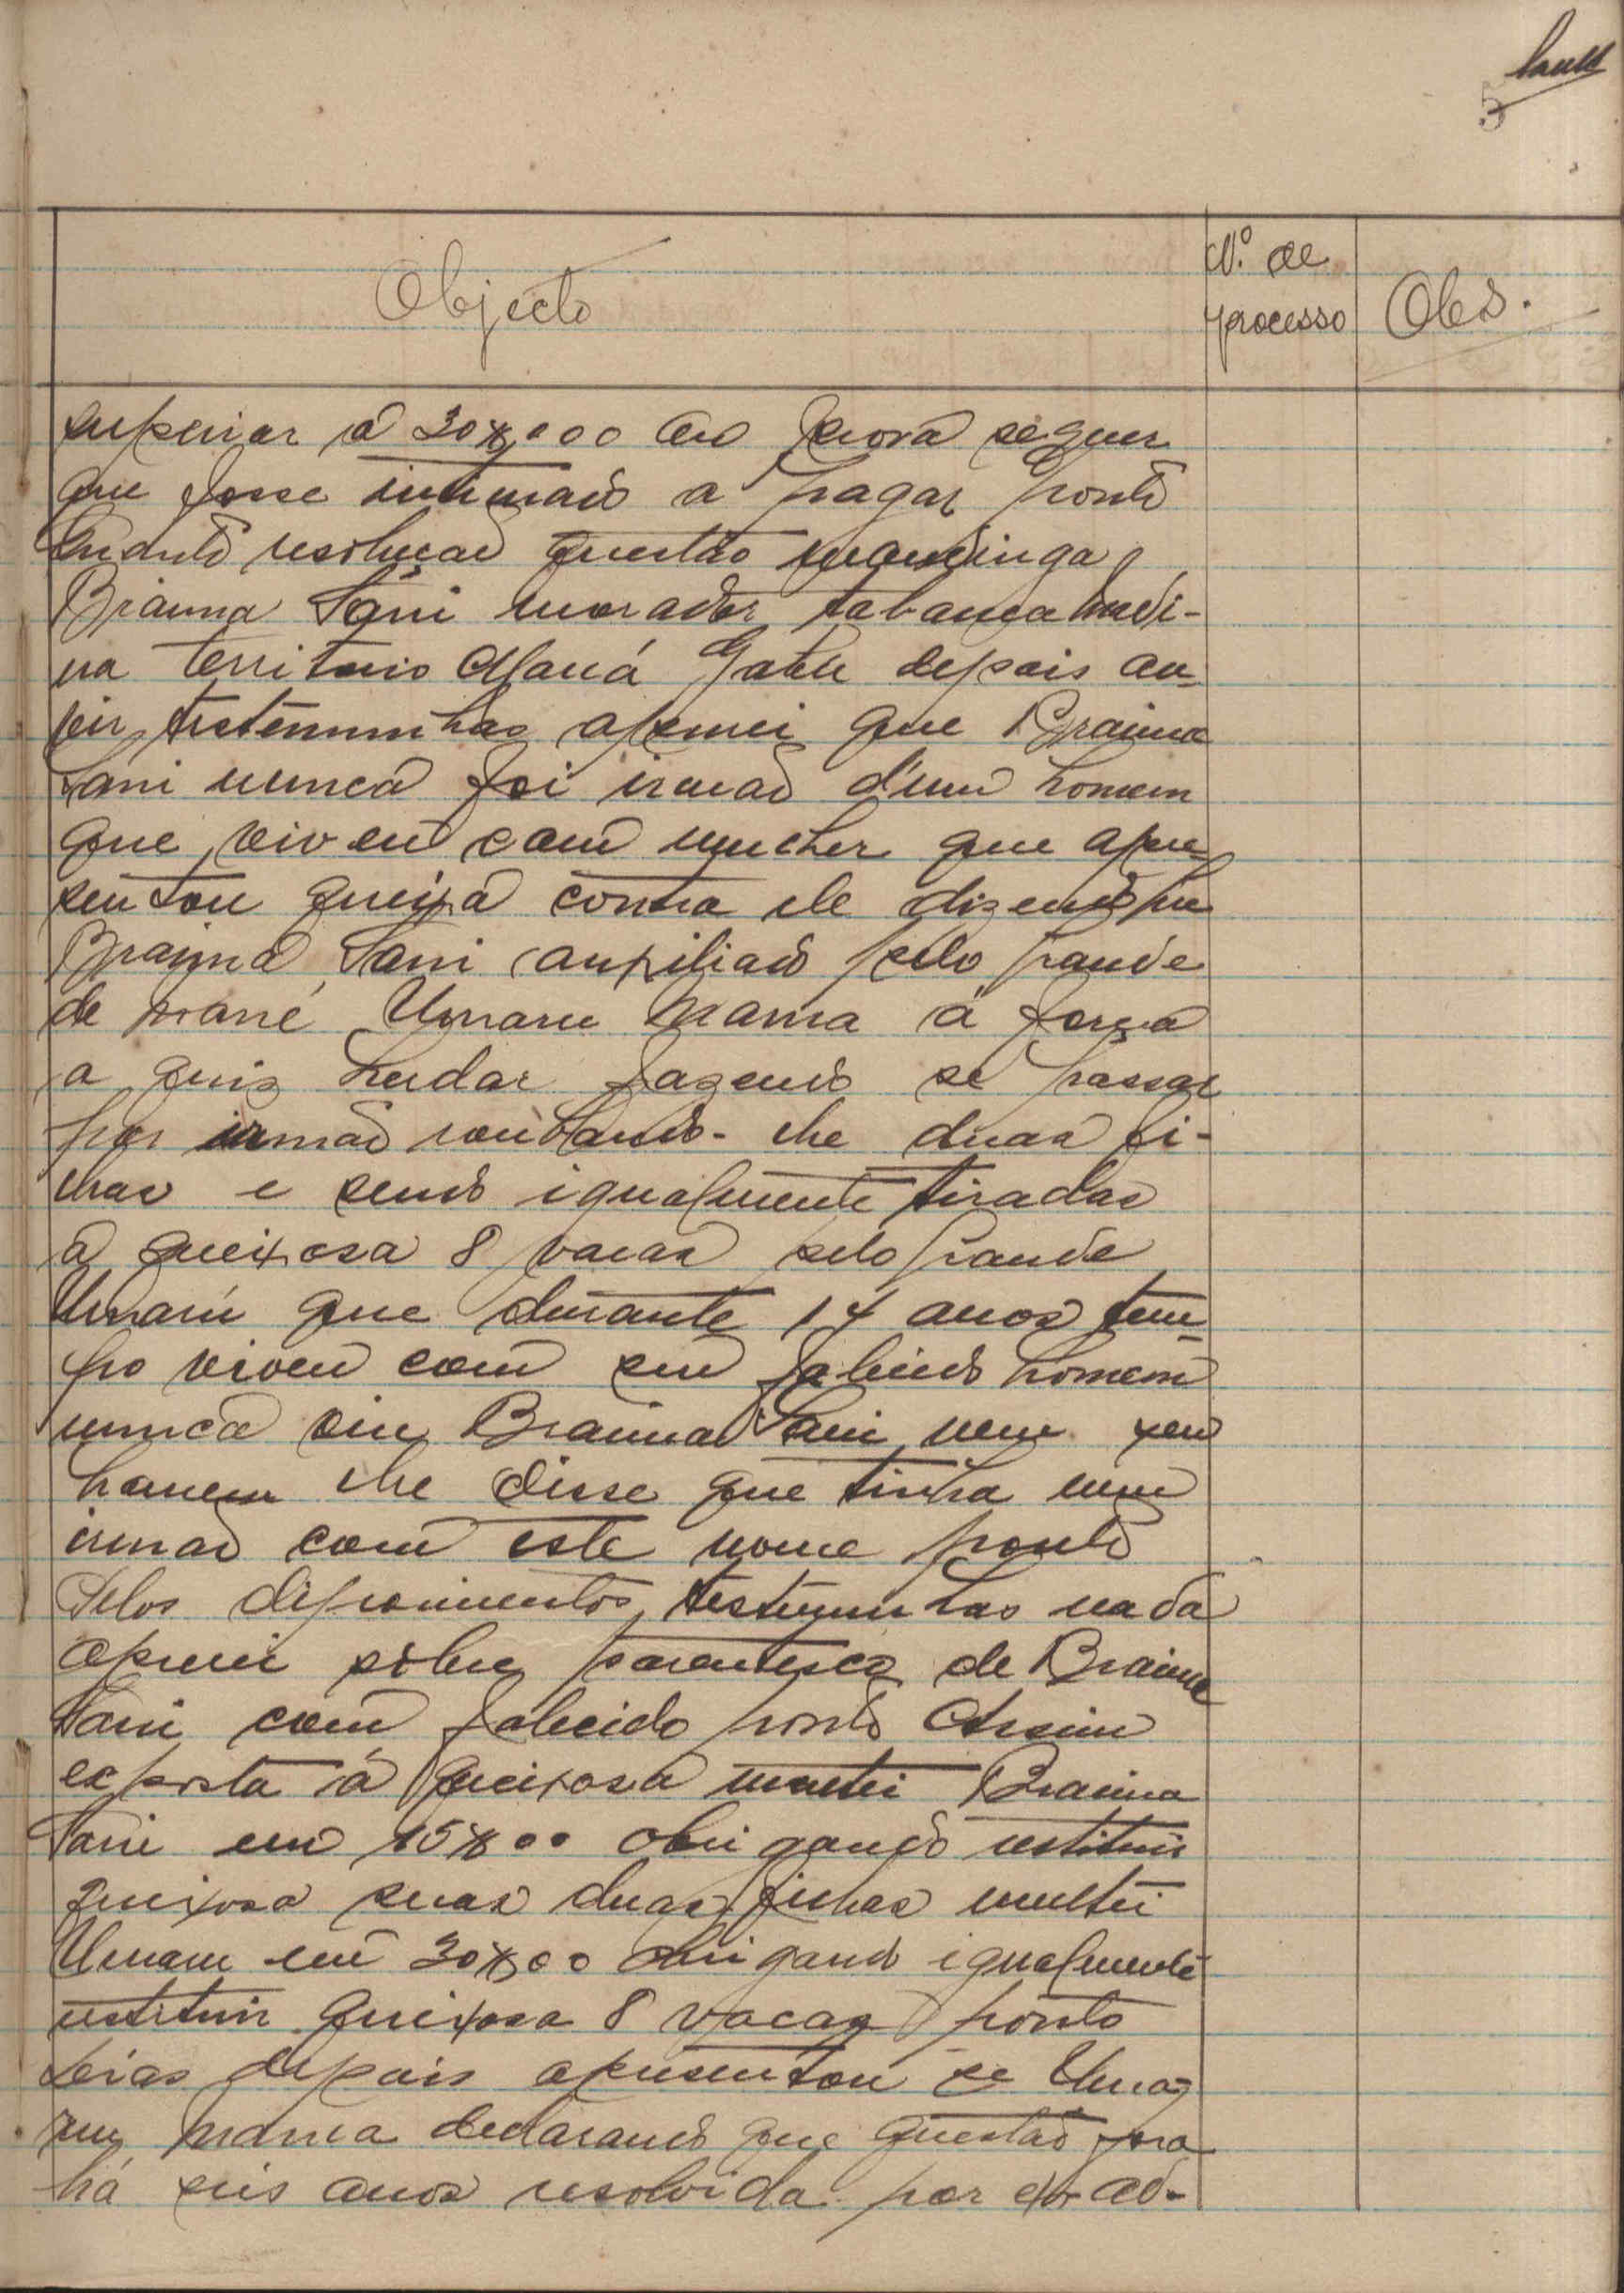 5
Objecto
N.º de
processo
Obs.
superior a 30$000 seguer
que fosse intimado a pagar ponto
resolução questão mandinga
Braima Sani morador tabanca Medi-
na territorio Maná Gabu depois ou-
vir testemunhas apurei que Braima
Sani nunca foi irmão d'um homem
que viveu com mulher que apre-
sentou queixa contra ele dizendo que
Braima Sani auxiliado pelo grande
de Umaru Mama á força
a quiz herdar fazendo se passar
por irmão roubando-lhe duas fi-
lhas e sendo igualmente tiradas
a queixosa 8 vacas pelo grande
Umarú que durante 14 anos tem-
po viveu com seu falecido homem
nunca viu Braima Sani nem seu
homem lhe disse que tinha um
irmão com este nome ponto
Pelos depoimentos testemunhas nada
apurei sobre parentesco de Braima
Sani com falecido ponto Assim
exposta á queixosa multei Braima
Sani em 15$00 obrigando restituir
queixosa suas duas filhas multei
Umaru em 30$00 obrigando igualmente
restituir queixosa 8 vacas ponto
Dias depois apresentou se Uma-
ru Mama declarando que questão fora
há seis anos resolvida por ex ad-